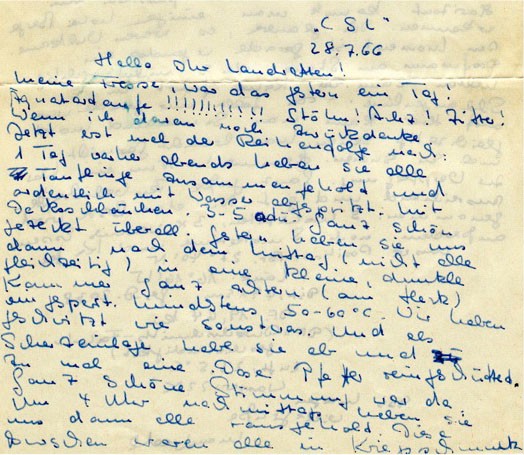 „CSL"
28.7.66
Hallo Ihr Landratten!
Meine Fresse, war das gestern ein Tag!
Äquatortaufe !!!!!!!!!!!! Stöhn! Ächz! Zitter!
Wenn ich daran noch zurückdenke.
Jetzt erst mal der Reihenfolge nach:
1 Tag vorher abends haben sie alle
Täuflinge zusammengeholt und
ordentlich mit Wasser abgespritzt. Mit
Decksschläuchen. 3-5 atü. Ganz schön
gezeckt überall. Gestern haben sie uns
dann nach dem Mittag (nicht alle
gleichzeitig) in eine kleine, dunkle
Kammer ganz achtern (am Heck)
eingesperrt. Mindstens 50-60°C. Wir haben
geschwitzt wie sonstwas. Und als
Scherzeinlage habe sie ab und
zu mal eine Dose Pfeffer reingeschüttet.
Ganz schöne Stimmung war da.
Um 4 Uhr nachmittags haben sie
uns dann alle rausgeholt. Diese
waren alle in Kriegsschmuck